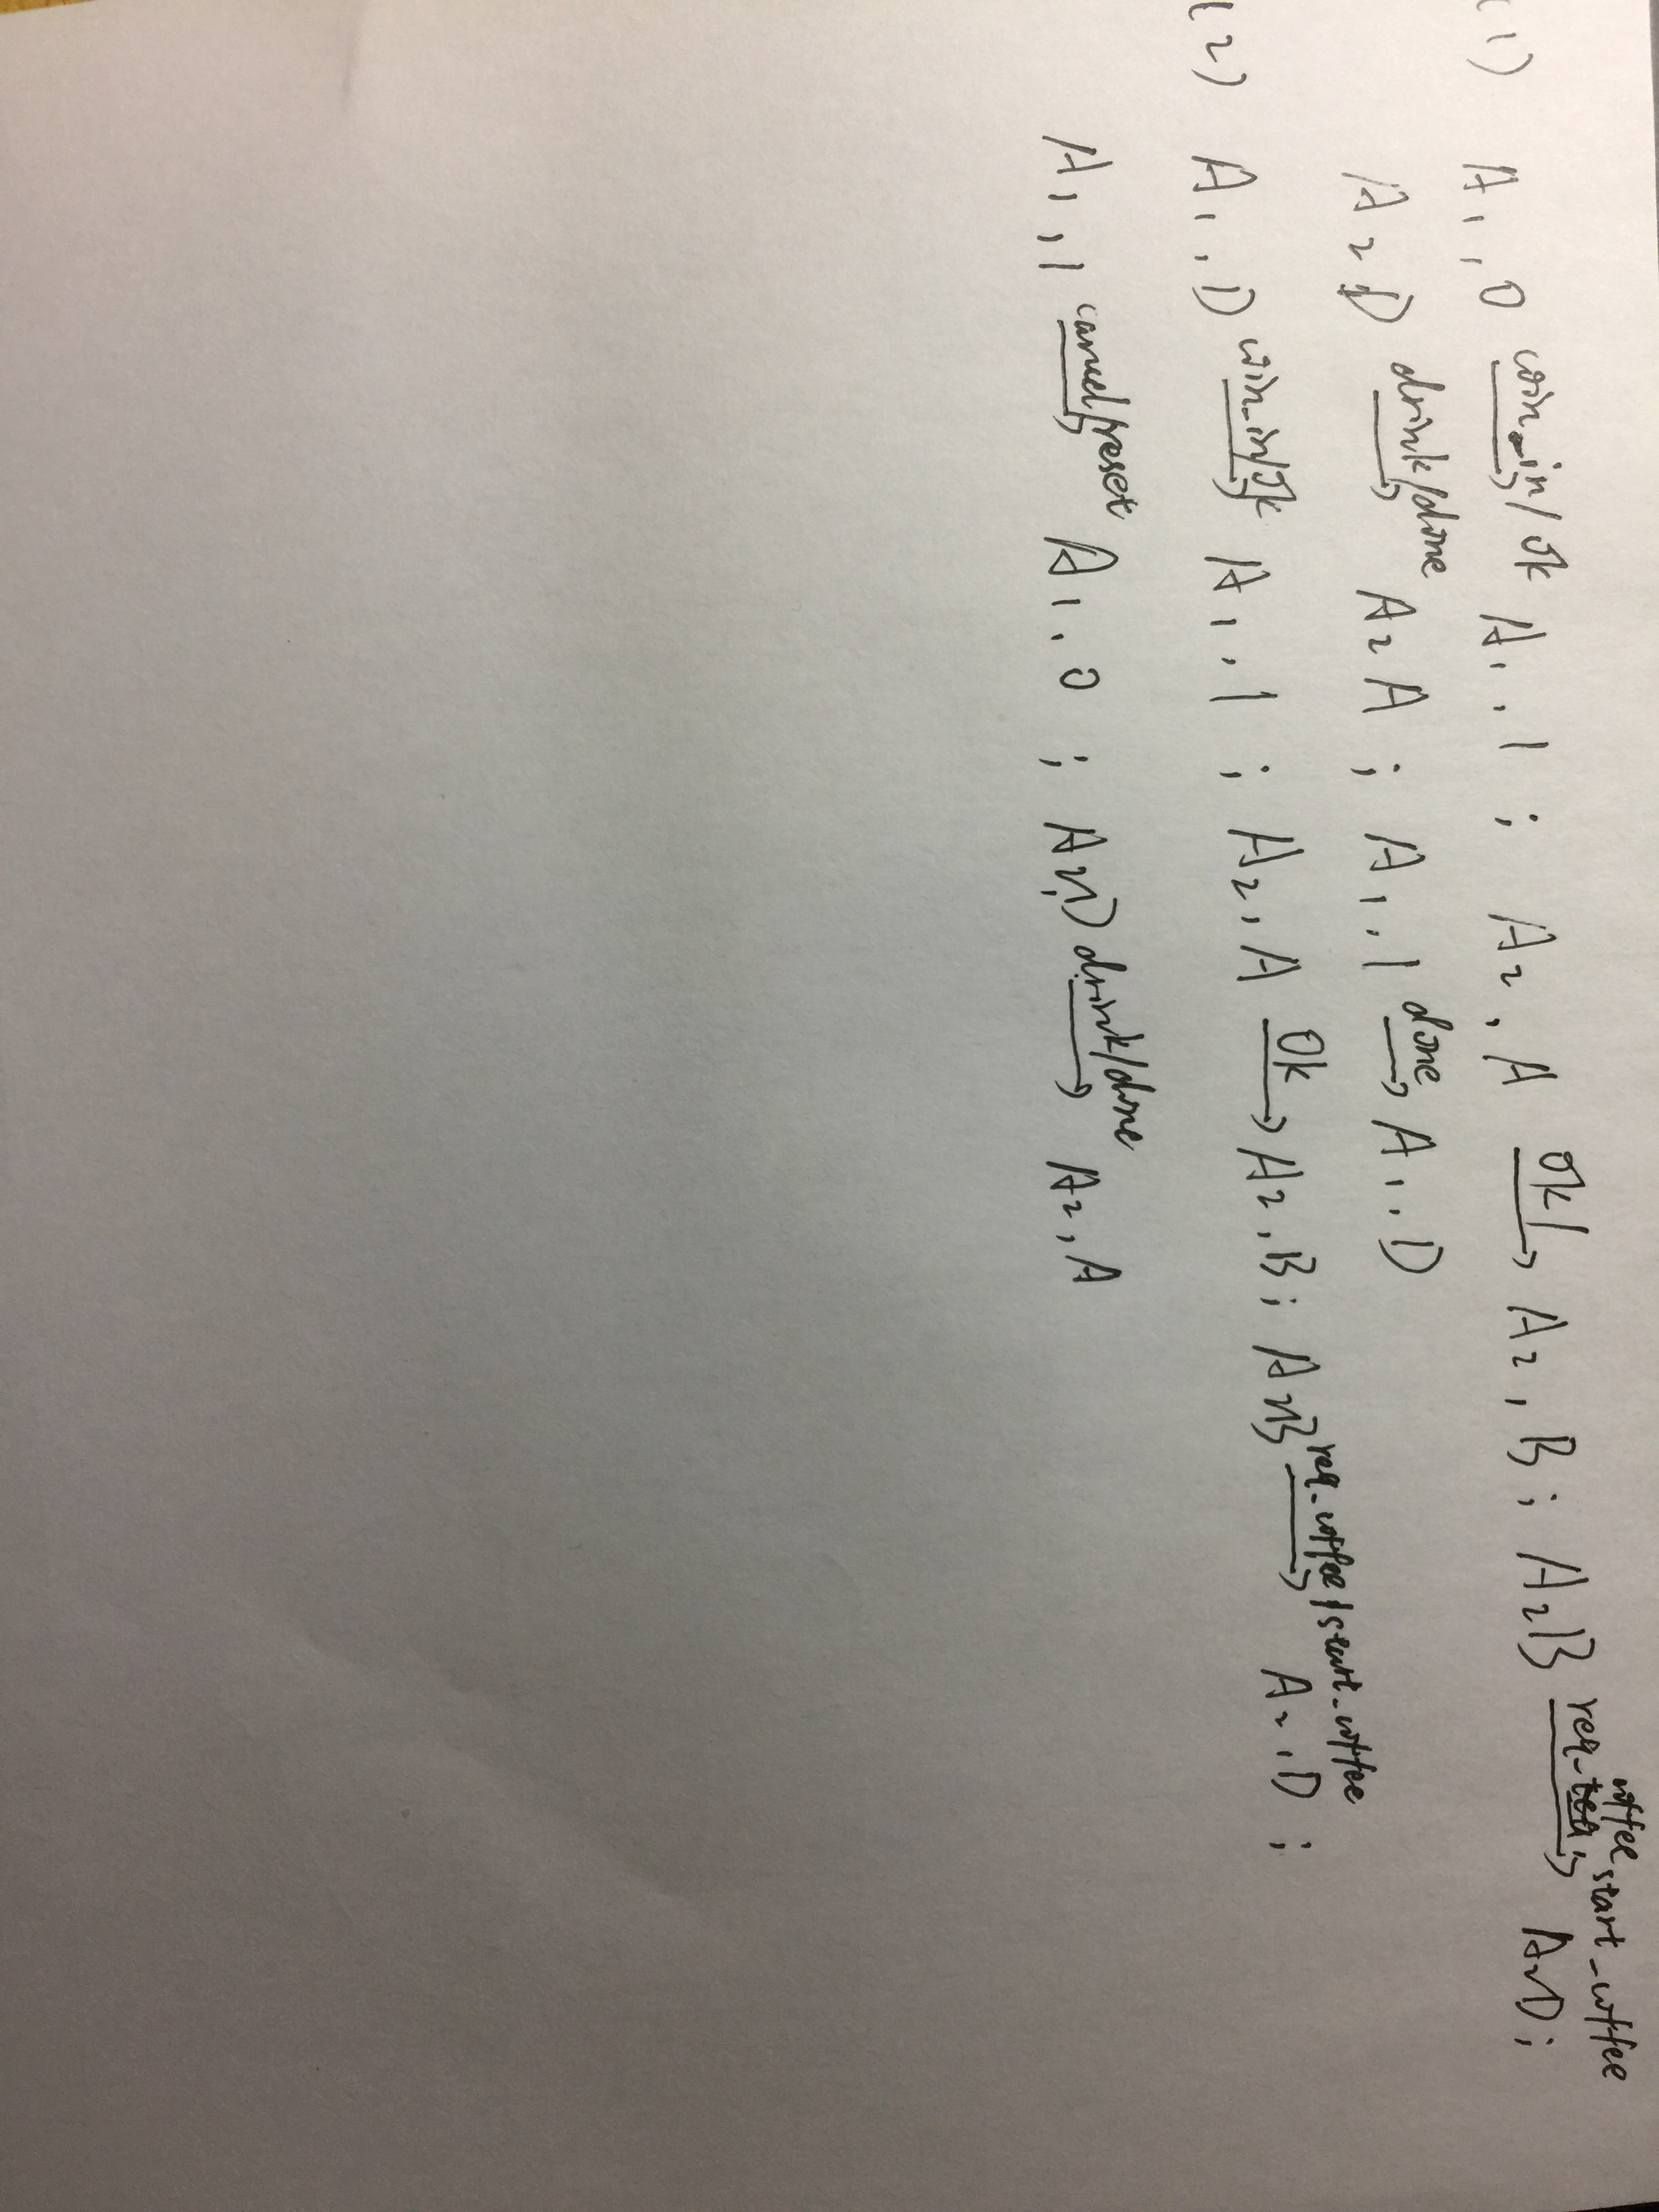 (1) A1,0 coin_in/ok A1,1 ; A2,A ok/ A2,B ; A2B req_coffee start_coffee A2D ;
A2D drink/done A2A ; A1,1 done A1,D
(2) A1,D coin_in/ok A1,1 ; A2,A ok A2,B ; A2B req_coffee/start_coffee A2,D ;
A1,1 cancel/reset A1,0 ; A2,D drink/done A2,A